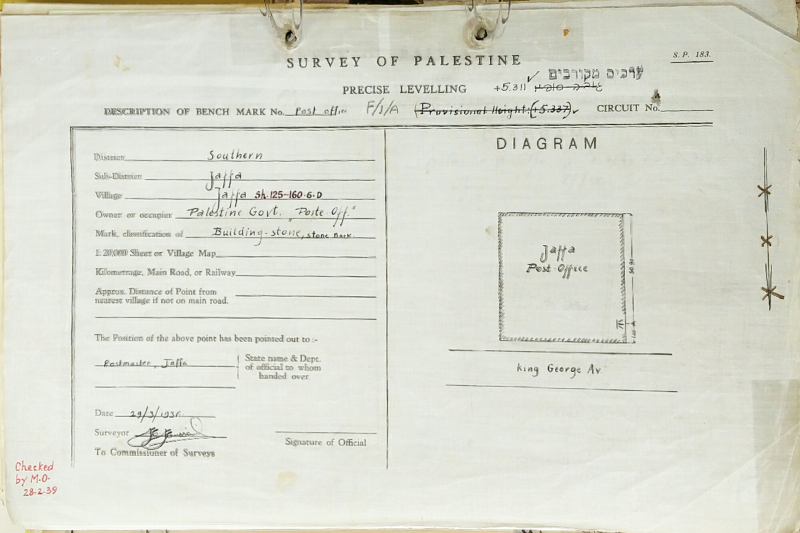 SURVEY OF PALESTINE
S.P. 183.
PRECISE LEVELLING
+5.311 ✓ ערכים מקורבים
DESCRIPTION OF BENCH MARK No. Post offi. F/J/A (Provisional Height: (+5.337) CIRCUIT No.
District Southern
Sub-District Jaffa
Village Jaffa Sh.125-160-6-D
Owner or occupier Palestine Govt. "Poste Off."
Mark, classification of Building-stone, stone mark.
1: 20,000 Sheet or Village Map
Kilometrage, Main Road, or Railway
Approx. Distance of Point from
nearest village if not on main road.
The Position of the above point has been pointed out to :-
Postmaster, Jaffa
State name & Dept.
of official to whom
handed over
Date 29/3/193
Surveyor
Signature of Official
To Commissioner of Surveys
Checked
by M.O.
28-2-39
DIAGRAM
Jaffa
Post Office
King George Av.